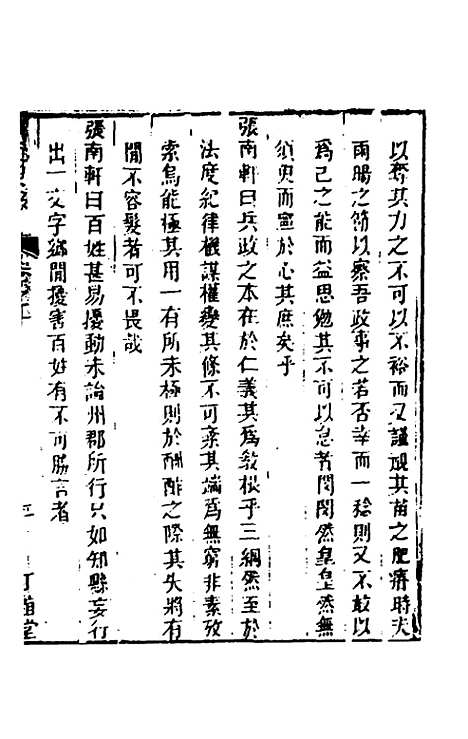 以奪其力之不可以不裕而又謹視其苗之肥瘠時夫
雨暘之節以察吾政事之若否幸而一稔則又不敢以
爲己之能而益思勉其不可以怠者閔閔然皇皇然無
須臾而寧於心其庶矣乎
張南軒曰兵政之本在於仁義其爲教根乎三綱然至於
法度紀律機謀權變其條不可紊其端爲無窮非素攷
索烏能極其用一有所未極則於酬酢之際其失將有
間不容髮者可不畏哉
張南軒曰百姓甚易擾動未論州郡所行只如知縣妄行
出一文字鄉閭擾害百姓有不可勝言者